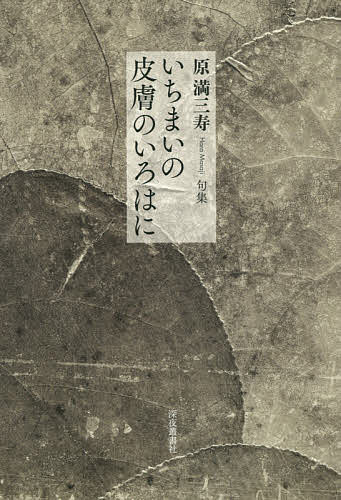 原満三寿
Hara Manji
句集
いちまいの
皮膚のいろはに
深夜叢書社